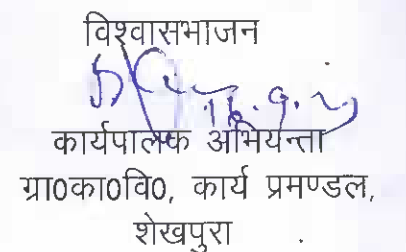 विश्वासभाजन
कार्यपालक अभियन्ता
ग्रा0का0वि0, कार्य प्रमण्डल,
शेखपुरा